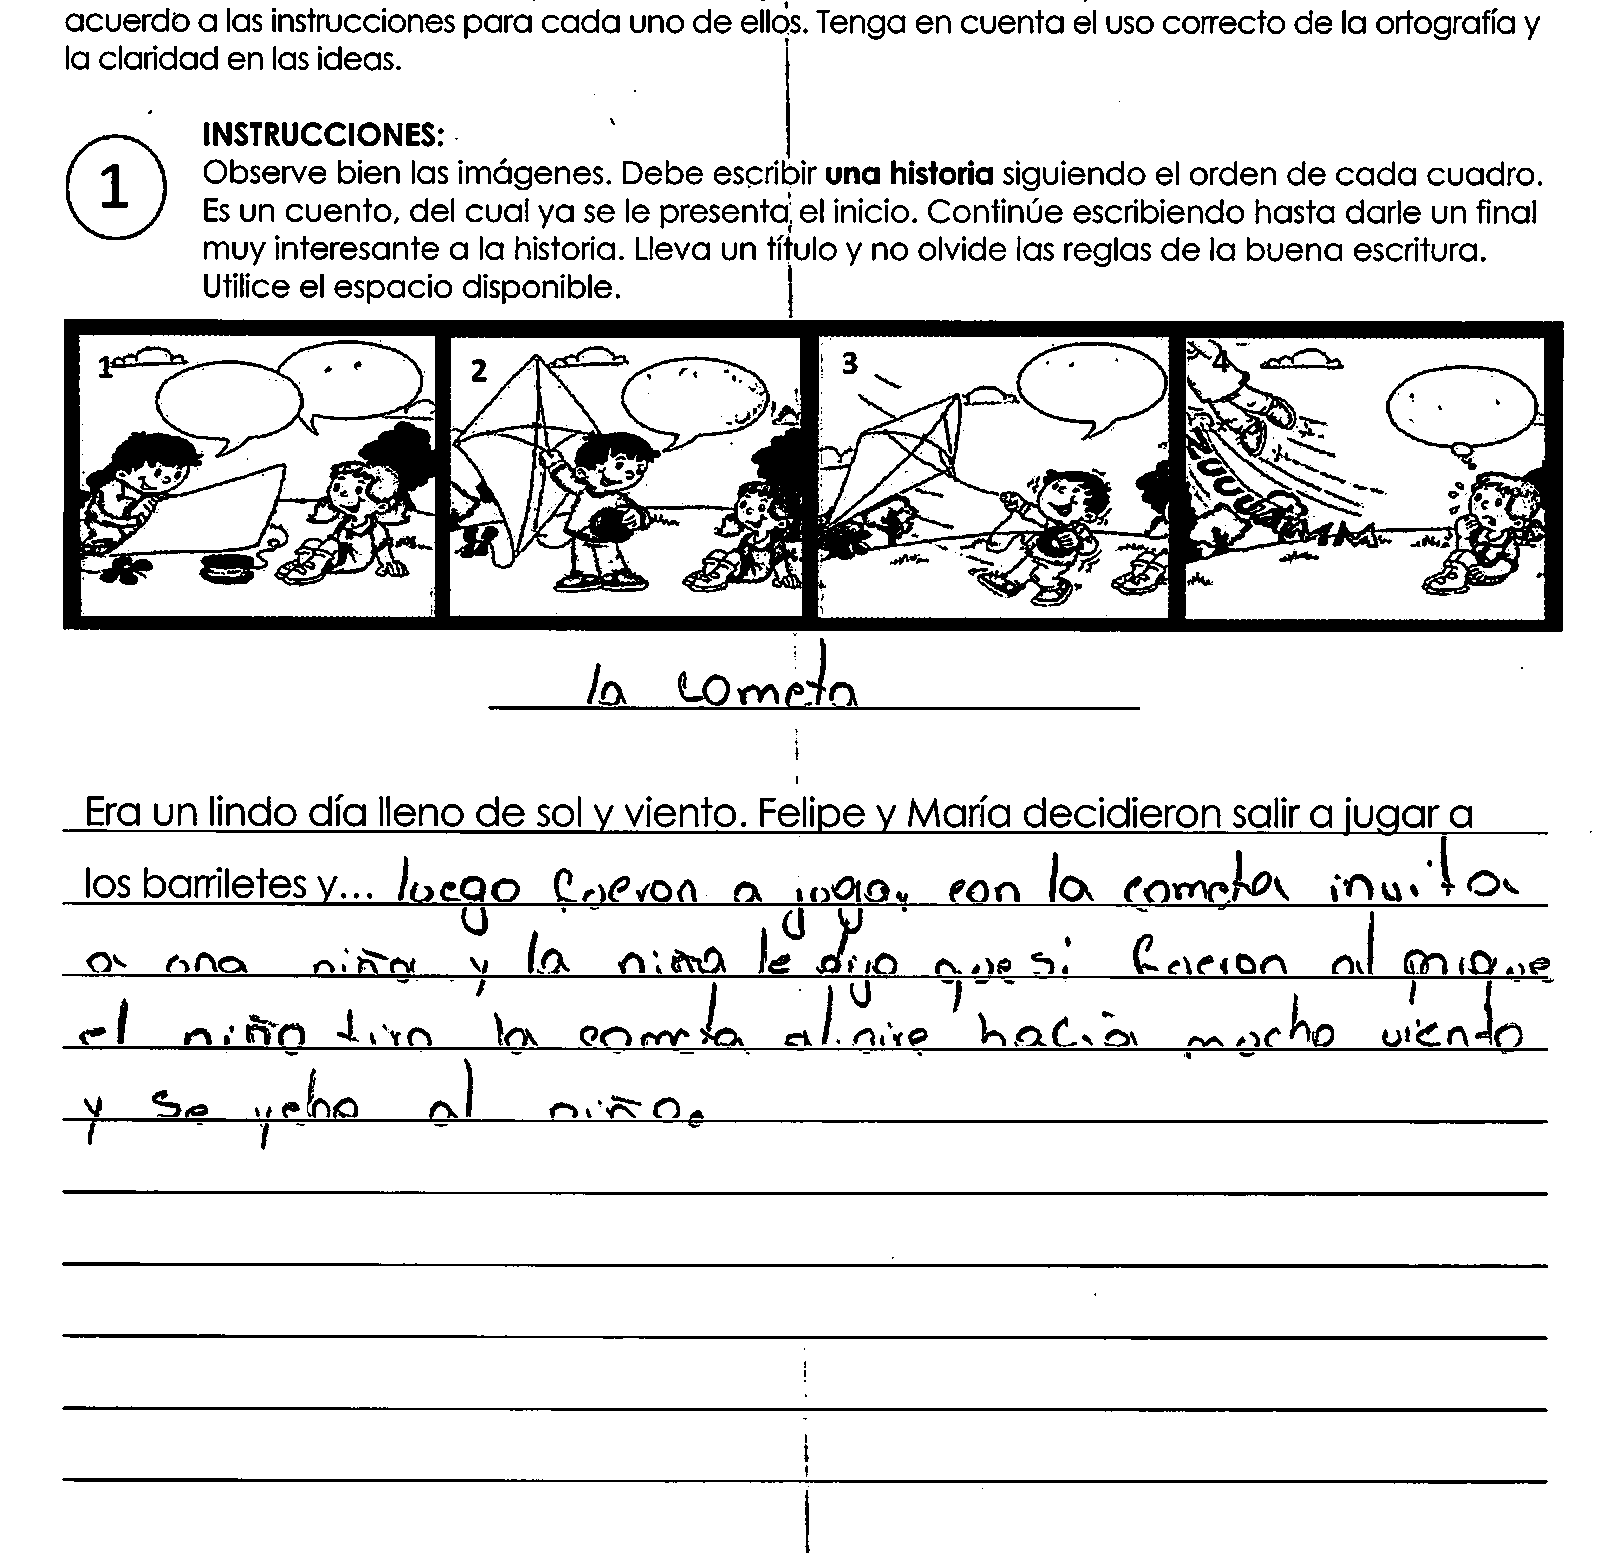 acuerdo a las instrucciones para cada uno de ellos. Tenga en cuenta el uso correcto de la ortografía y
la claridad en las ideas.
1
INSTRUCCIONES:
Observe bien las imágenes. Debe escribir una historia siguiendo el orden de cada cuadro.
Es un cuento, del cual ya se le presenta el inicio. Continúe escribiendo hasta darle un final
muy interesante a la historia. Lleva un título y no olvide las reglas de la buena escritura.
Utilice el espacio disponible.
1 2 3 4
la cometa
Era un lindo día lleno de sol y viento. Felipe y María decidieron salir a jugar a
los barriletes y... luego fueron a jugar con la cometa invita
a una niña y la niña le dijo que si fueron al
el niño tiro la cometa al aire hacia mucho viento
y se al niño.